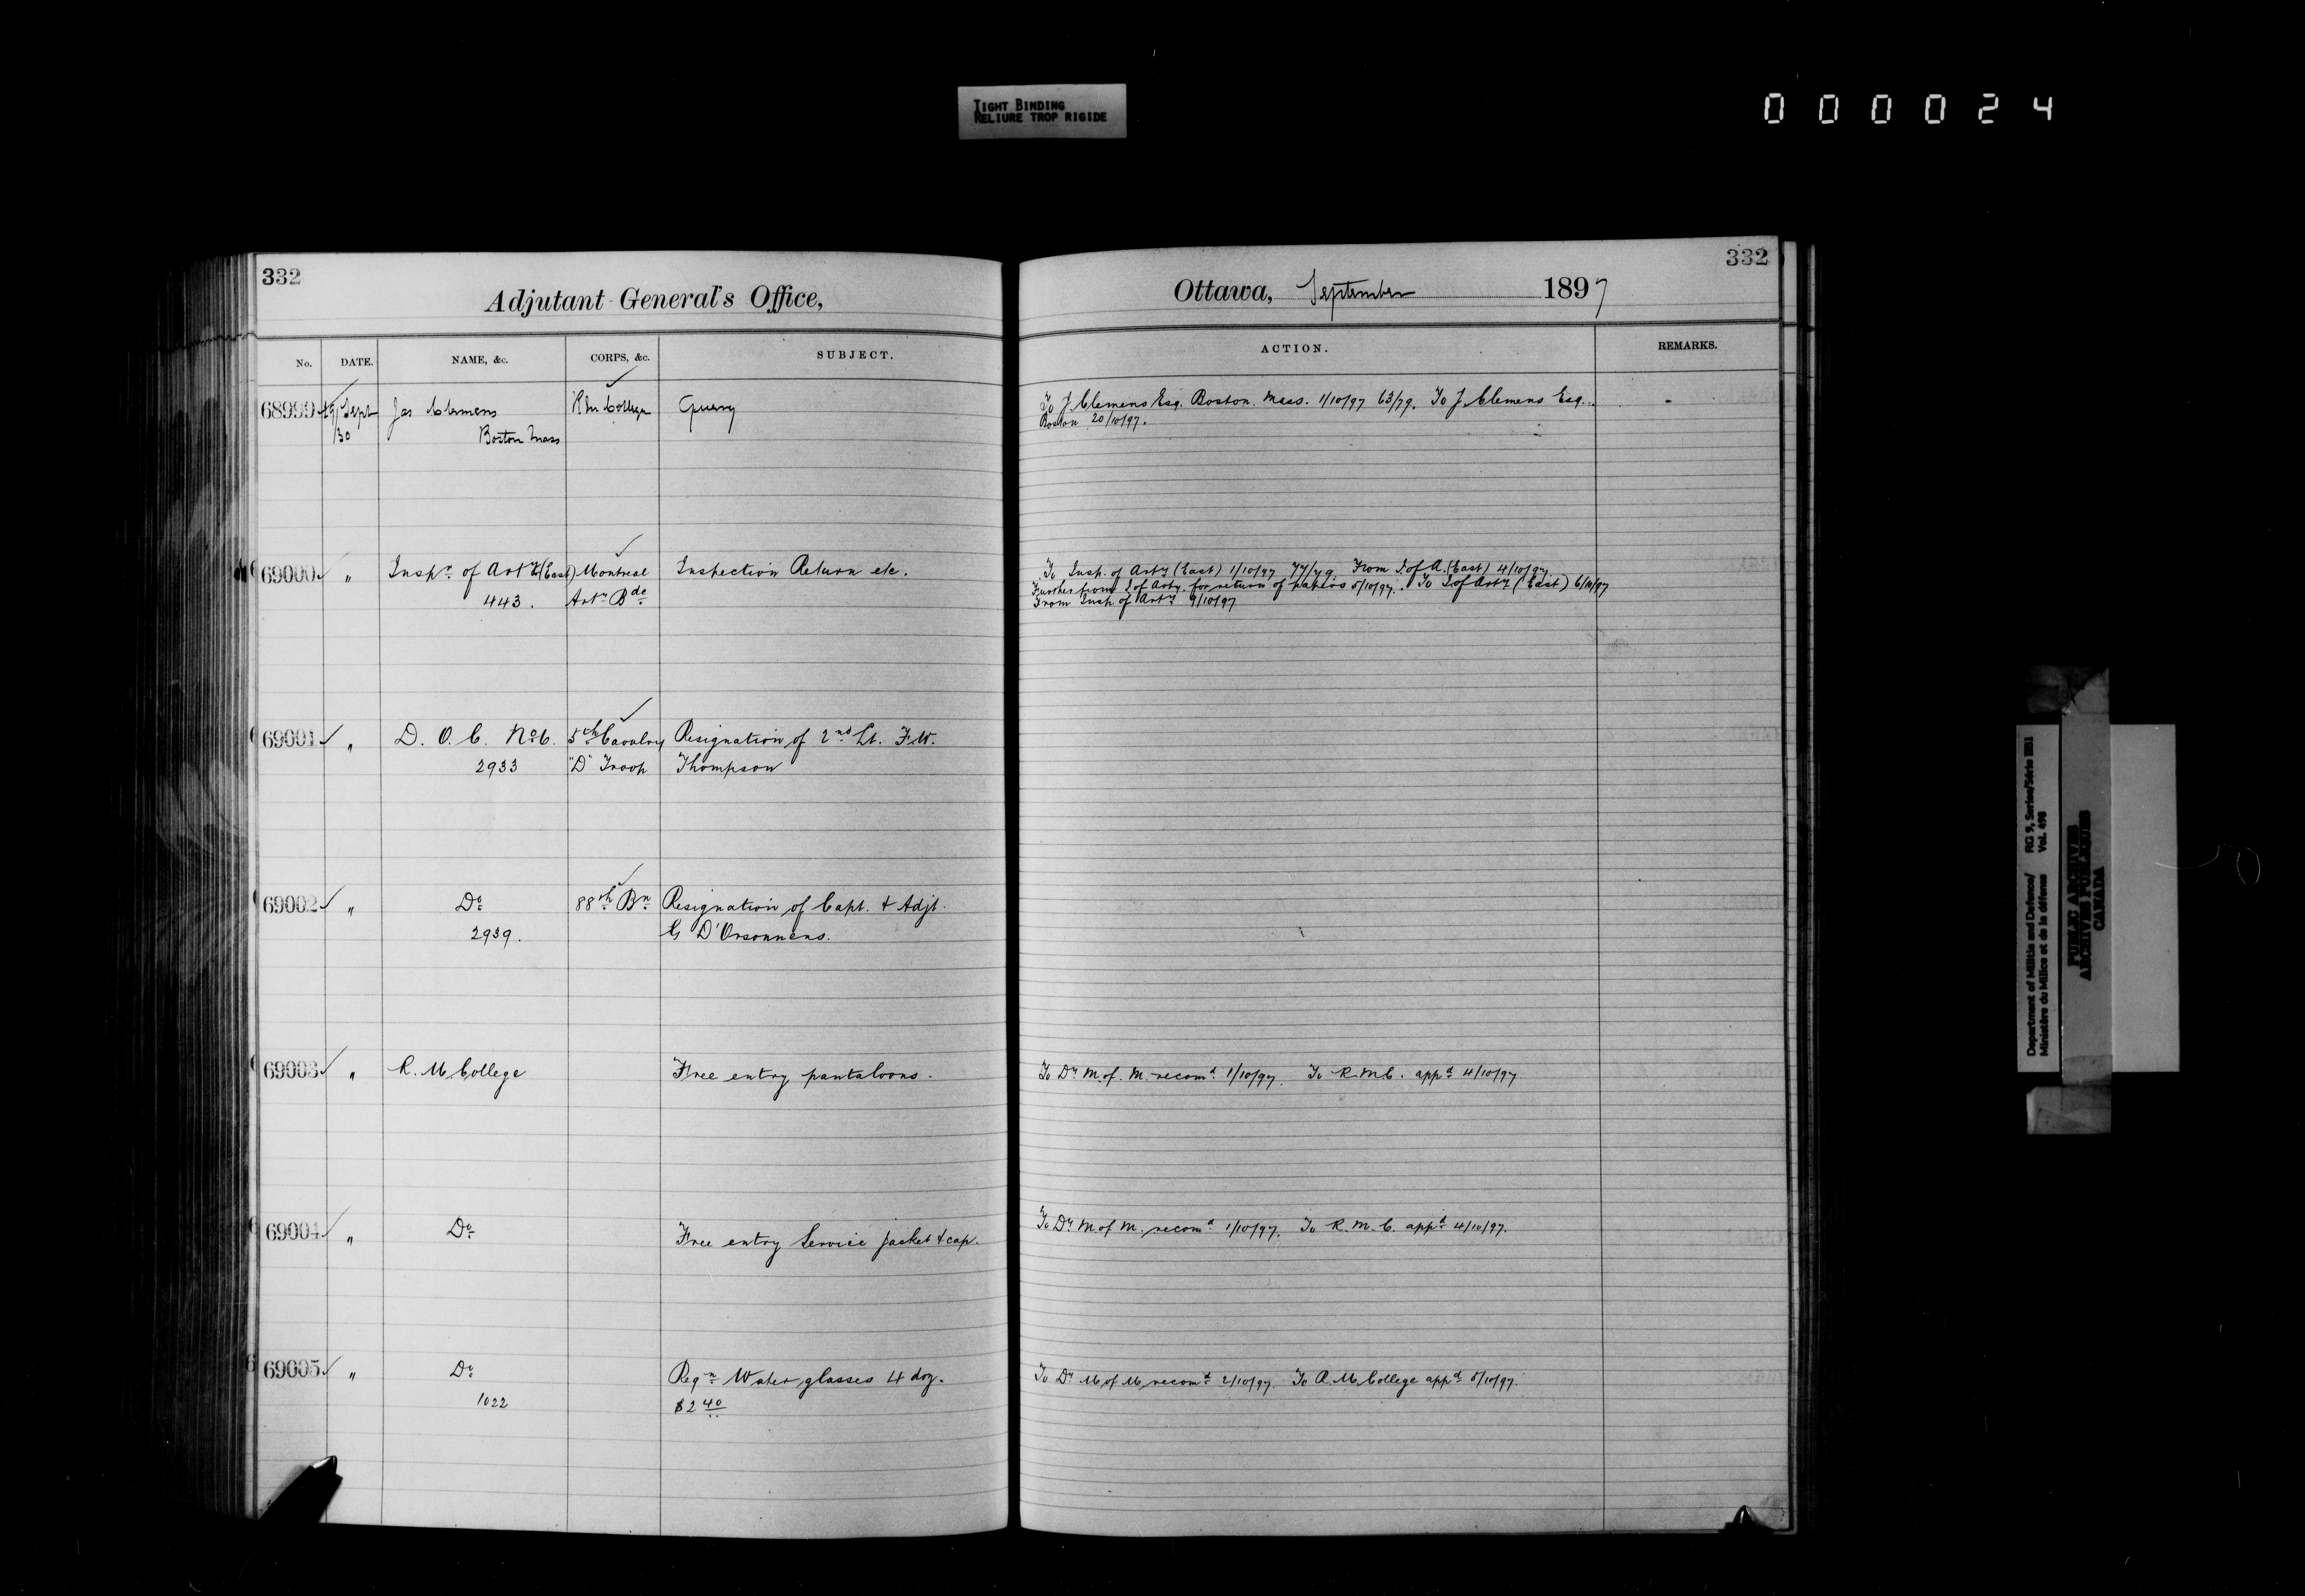 TIGHT BINDING
RELIURE TROP RIGIDE
000024
332
Adjutant General's Office,
No. DATE. NAME, &c. CORPS, &c. SUBJECT.
68999 Sept Jas Clemens R M College Query
30 Boston Mass
69000 " Inspr. of Arty (East) Montreal Inspection Return etc.
443. Arty Bde
69001 " D. O. C. No 6. 5th Cavalry Resignation of 2nd Lt. F.W.
2933 "D" Troop Thompson
69002 " Do 88th Bn Resignation of Capt. & Adjt.
2939. G D'Orsonnens.
69003 " R. M. College Free entry pantaloons.
69004 " Do Free entry Service jacket & cap.
69005 " Do Reqn Water glasses 4 doz.
1022 $2 40
332
Ottawa, September 1897
ACTION. REMARKS.
To J. Clemens Esq. Boston. Mass. 1/10/97 63/79. To J. Clemens Esq.
Boston 20/10/97.
To Insp. of Arty (East) 1/10/97 77/79 From I. of A. (East) 4/10/97
Further from I of Arty. for return of papers 5/10/97. To I of Arty (East) 6/10/97
From Insp. of Arty 9/10/97
To Dy M. of M. recomd 1/10/97. To R.M.C. appd 4/10/97
To Dy M. of M. recomd 1/10/97. To R.M.C. appd 4/10/97.
To Dy M of M recomd 2/10/97. To R. M College appd 5/10/97.
Department of Militia and Defence/ RG 9, Series/Série IIB1
Ministère du Milice et de la défense Vol. 498
PUBLIC ARCHIVES
ARCHIVES PUBLIQUES
CANADA